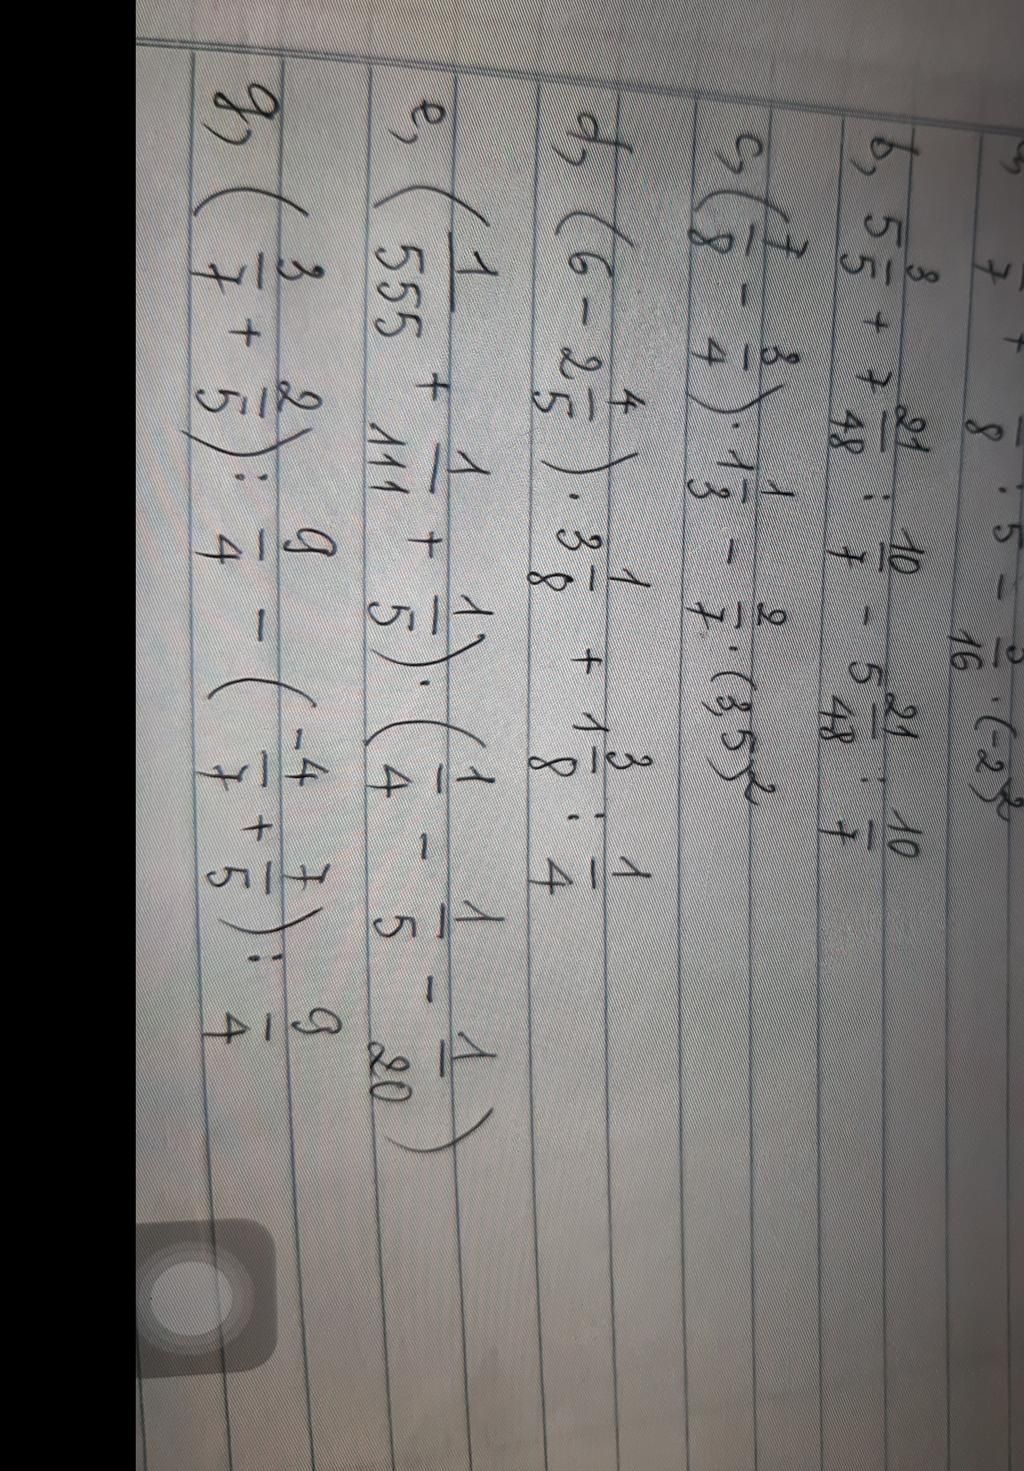 7 + 8 : 5 - 3/16 . (-2)²
b, 5 3/5 + 7 21/48 : 10/7 - 5 21/48 : 10/7
c, (7/8 - 3/4) . 1 1/3 - 2/7 . (3,5)²
d, (6 - 2 4/5) . 3 1/8 + 1 3/8 : 1/4
e, (1/555 + 1/111 + 1/5) . (1/4 - 1/5 - 1/20)
g, (3/7 + 2/5) : 9/4 - (-4/7 + 7/5) : 9/4